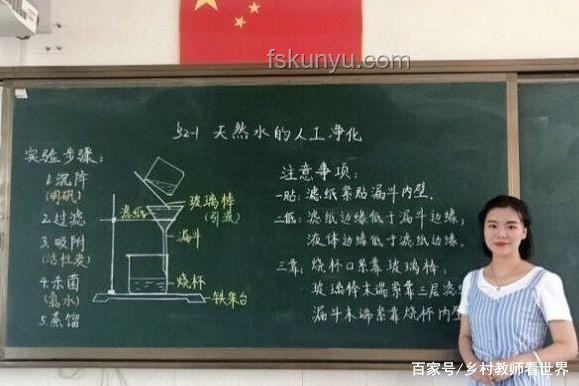 fskunyu.com
§2-1 天然水的人工净化
实验步骤:
1.沉降
(明矾)
2.过滤
3.吸附
(活性炭)
4.杀菌
(氯水)
5.蒸馏
滤纸
玻璃棒
(引流)
漏斗
烧杯
铁架台
注意事项:
一贴: 滤纸紧贴漏斗内壁.
二低: 滤纸边缘低于漏斗边缘,
液体边缘低于滤纸边缘.
三靠: 烧杯口紧靠玻璃棒,
玻璃棒末端紧靠三层
漏斗末端紧靠烧杯内壁
百家号/乡村教师看世界